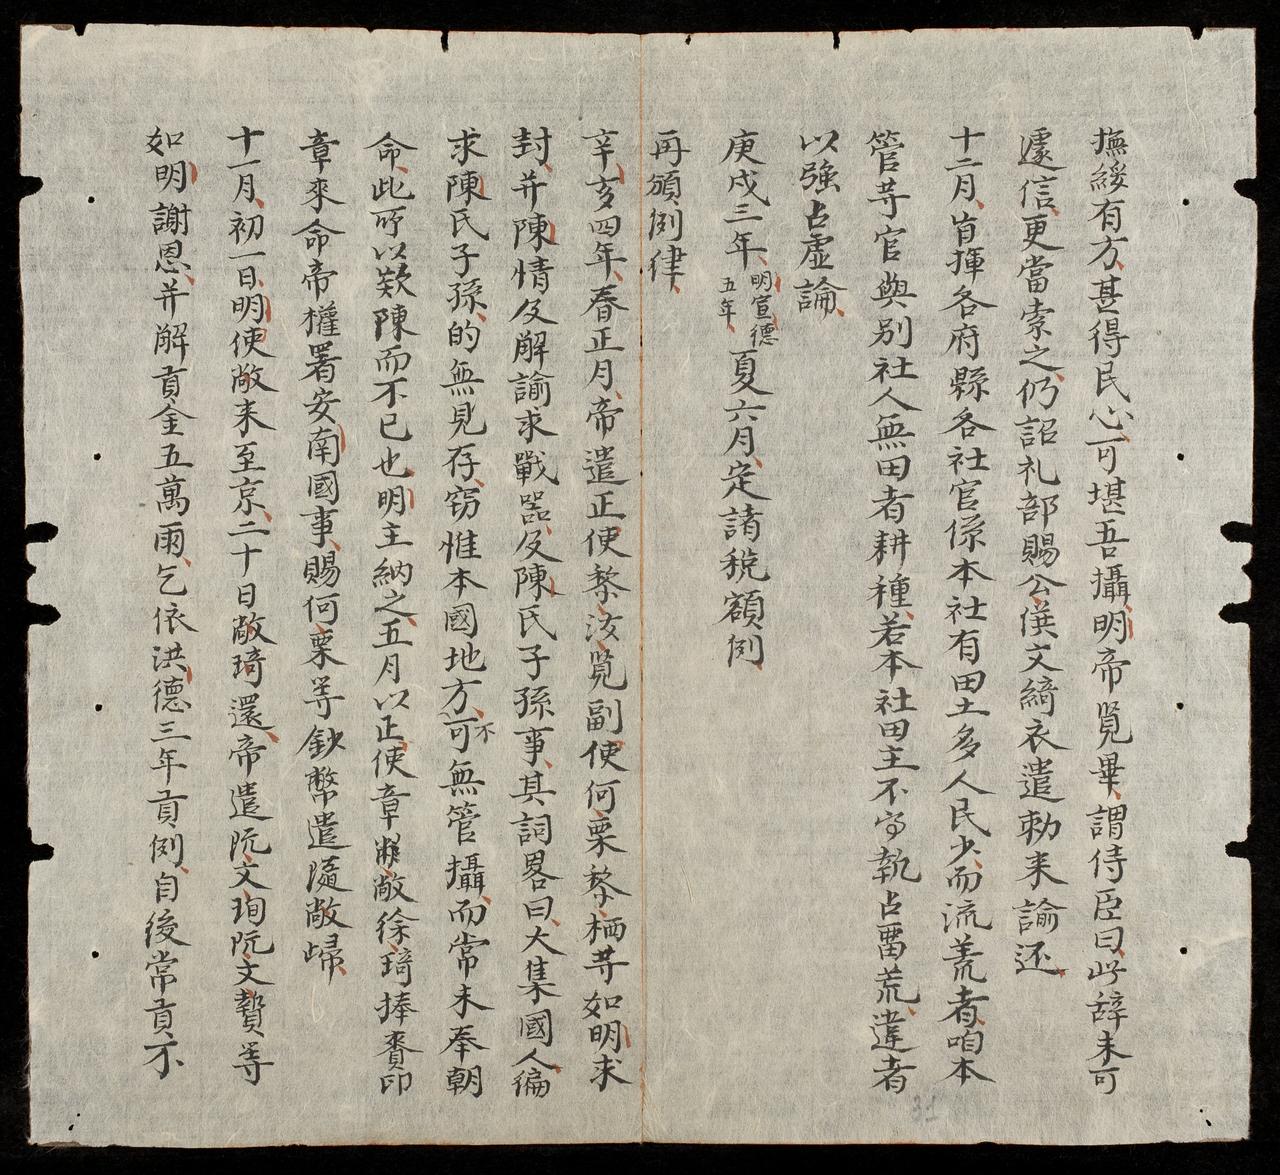 撫綏有方甚得民心可堪吾攝明帝覧畢謂侍臣曰此辞未可
遽信更當索之仍詔礼部賜公僎文綺衣遣勅来諭还
十二月旨揮各府縣各社官係本社有田土多人民少而流荒者咱本
管䓁官與别社人無田者耕種若本社田主不肯執占畱荒違者
以強占虚論
庚戌三年明宣德五年夏六月定諸税額例
再頒例律
辛亥四年春正月帝遣正使黎汝覧副使何栗黎柄䓁如明求
封并陳情及解諭求戰噐及陳氏子孫事其詞畧曰大集國人徧
求陳氏子孫的無見存窃惟本國地方不可無管攝而常未奉朝
命此所以欵陳而不已也明主納之五月以正使章敞徐琦捧賫印
章來命帝權署安南國事賜何栗等鈔幣遣隨敞歸
十一月初一日明使敞来至京二十日敞琦還帝遣阮文珣阮文贄等
如明謝恩并解貢金五萬兩乞依洪德三年貢例自後常貢不